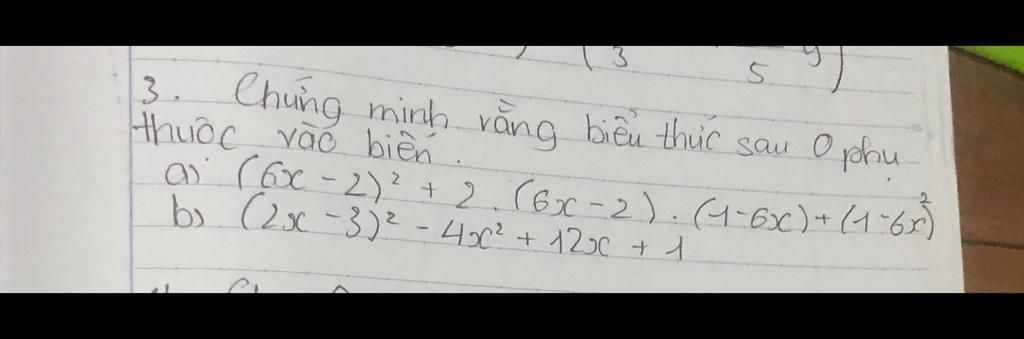 (3 5 y)
3. Chứng minh rằng biểu thức sau 0 phụ
thuộc vào biến.
a) (6x - 2)² + 2. (6x - 2). (1-6x) + (1-6x)²
b) (2x - 3)² - 4x² + 12x + 1